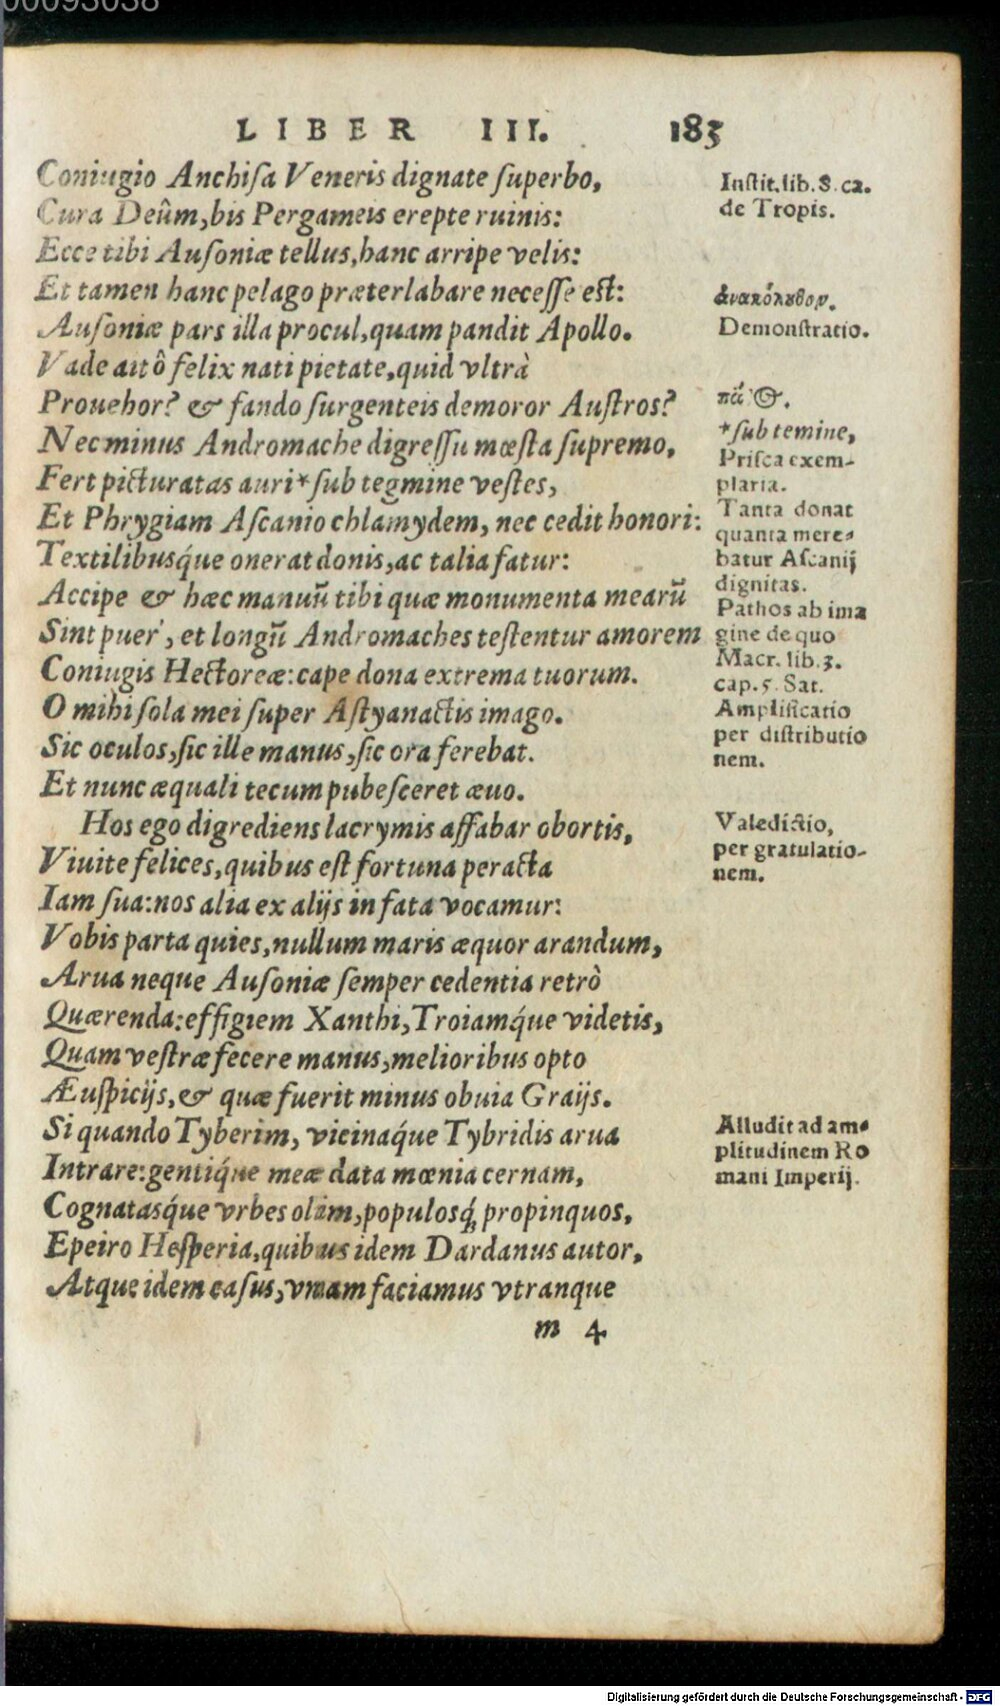 00093038
LIBER III. 183
Coniugio Anchiſa Veneris dignate ſuperbo,
Cura Deûm, bis Pergameis erepte ruinis:
Ecce tibi Auſoniæ tellus, hanc arripe velis:
Et tamen hanc pelago præterlabare neceſſe eſt:
Auſoniæ pars illa procul, quam pandit Apollo.
Vade ait ô felix nati pietate, quid vltrà
Prouehor? & fando ſurgenteis demoror Auſtros?
Nec minus Andromache digreſſu mœſta ſupremo,
Fert picturatas auri* ſub tegmine veſtes,
Et Phrygiam Aſcanio chlamydem, nec cedit honori:
Textilibusq́ue onerat donis, ac talia fatur:
Accipe & hæc manuũ tibi quæ monumenta mearũ
Sint puer, et longũ Andromaches teſtentur amorem
Coniugis Hectoreæ: cape dona extrema tuorum.
O mihi ſola mei ſuper Aſtyanactis imago.
Sic oculos, ſic ille manus, ſic ora ferebat.
Et nunc æquali tecum pubeſceret æuo.
Hos ego digrediens lacrymis affabar obortis,
Viuite felices, quibus eſt fortuna peracta
Iam ſua: nos alia ex alijs in fata vocamur:
Vobis parta quies, nullum maris æquor arandum,
Arua neque Auſoniæ ſemper cedentia retrò
Quærenda: effigiem Xanthi, Troiamq́ue videtis,
Quam veſtræ fecere manus, melioribus opto
Æuſpicijs, & quæ fuerit minus obuia Graijs.
Si quando Tyberim, vicinaq́ue Tybridis arua
Intrare: gentiq́ue meæ data mœnia cernam,
Cognatasq́ue vrbes olim, populosq́; propinquos,
Epeiro Heſperia, quibus idem Dardanus autor,
Atque idem caſus, vnam faciamus vtranque
m 4
Inſtit. lib. 8. ca.
de Tropis.
ἀνακόλουθον.
Demonſtratio.
*ſub temine,
Priſca exem-
plaria.
Tanta donat
quanta mere-
batur Aſcanij
dignitas.
Pathos ab ima
gine de quo
Macr. lib. 3.
cap. 5. Sat.
Amplificatio
per diſtributio
nem.
Valedictio,
per gratulatio-
nem.
Alludit ad am-
plitudinem Ro
mani Imperij.
Digitalisierung gefördert durch die Deutsche Forschungsgemeinschaft - DFG